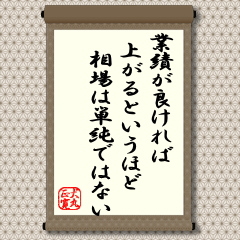 業績が良ければ
上がるというほど
相場は単純ではない
大丸
正寛